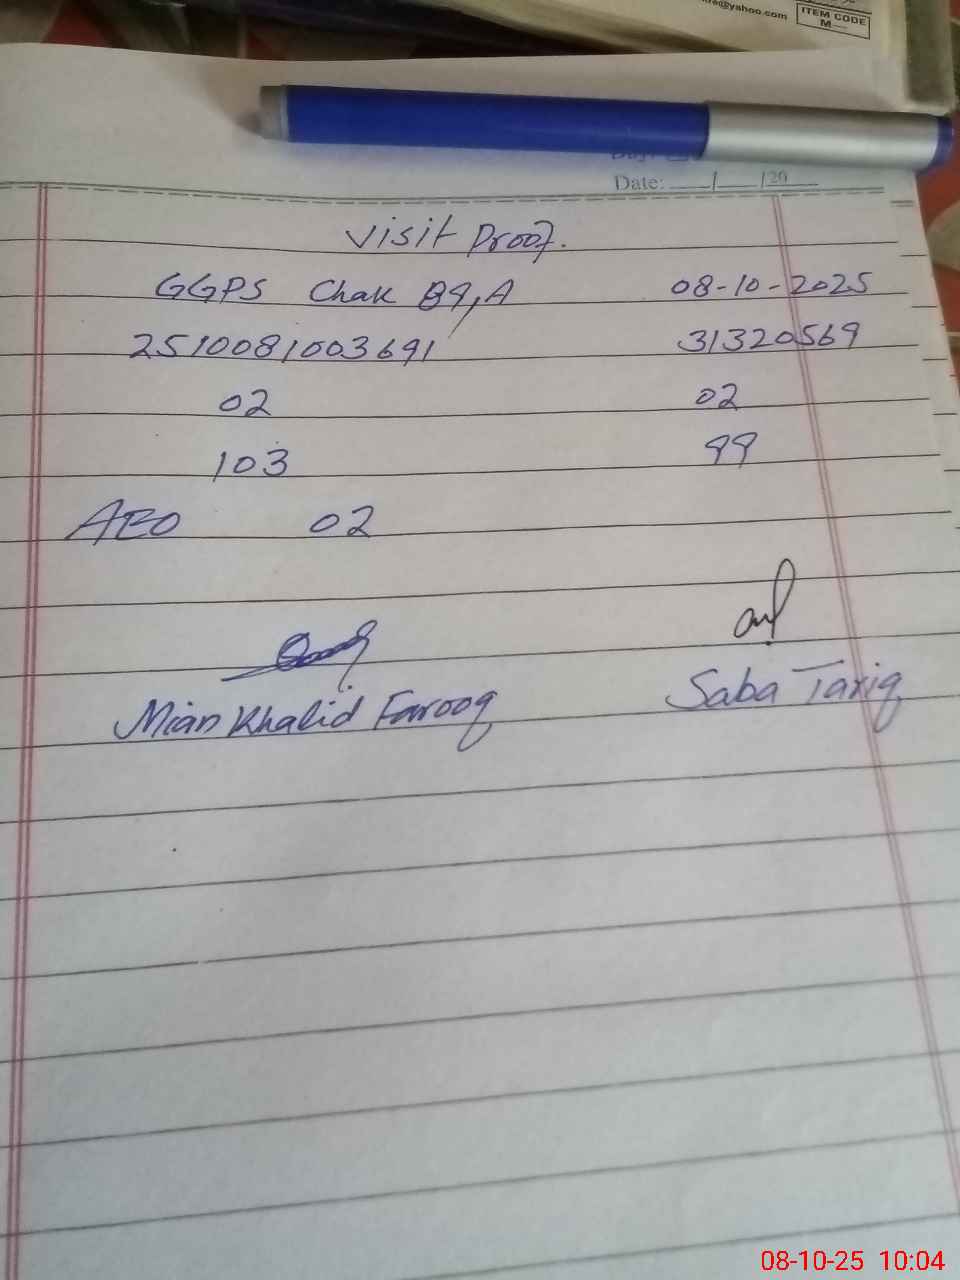 @yahoo.com
ITEM CODE
M
Date: ___/___/20___
Visit Proof.
GGPS Chak 89,A 08-10-2025
2510081003691 31320569
02 02
103 99
AEO 02
Mian Khalid Farooq Saba Tariq
08-10-25 10:04